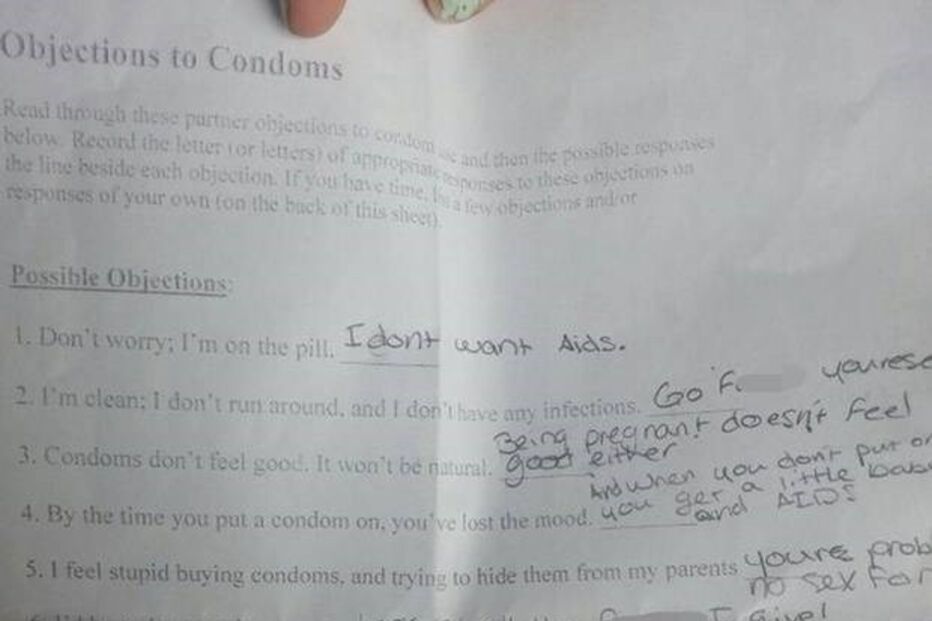 Objections to Condoms
Read through these partner objections to condom use and then the possible responses
below. Record the letter (or letters) of appropriate responses to these objections on
the line beside each objection. If you have time, list a few objections and/or
responses of your own (on the back of this sheet).
Possible Objections:
1. Don't worry; I'm on the pill. I dont want Aids.
2. I'm clean; I don't run around, and I don't have any infections. Go F
3. Condoms don't feel good. It won't be natural. Being pregnant doesn't feel
good either
4. By the time you put a condom on, you've lost the mood. And when you dont put on
you get a little
and AIDS
5. I feel stupid buying condoms, and trying to hide them from my parents youre
no sex for
I give!